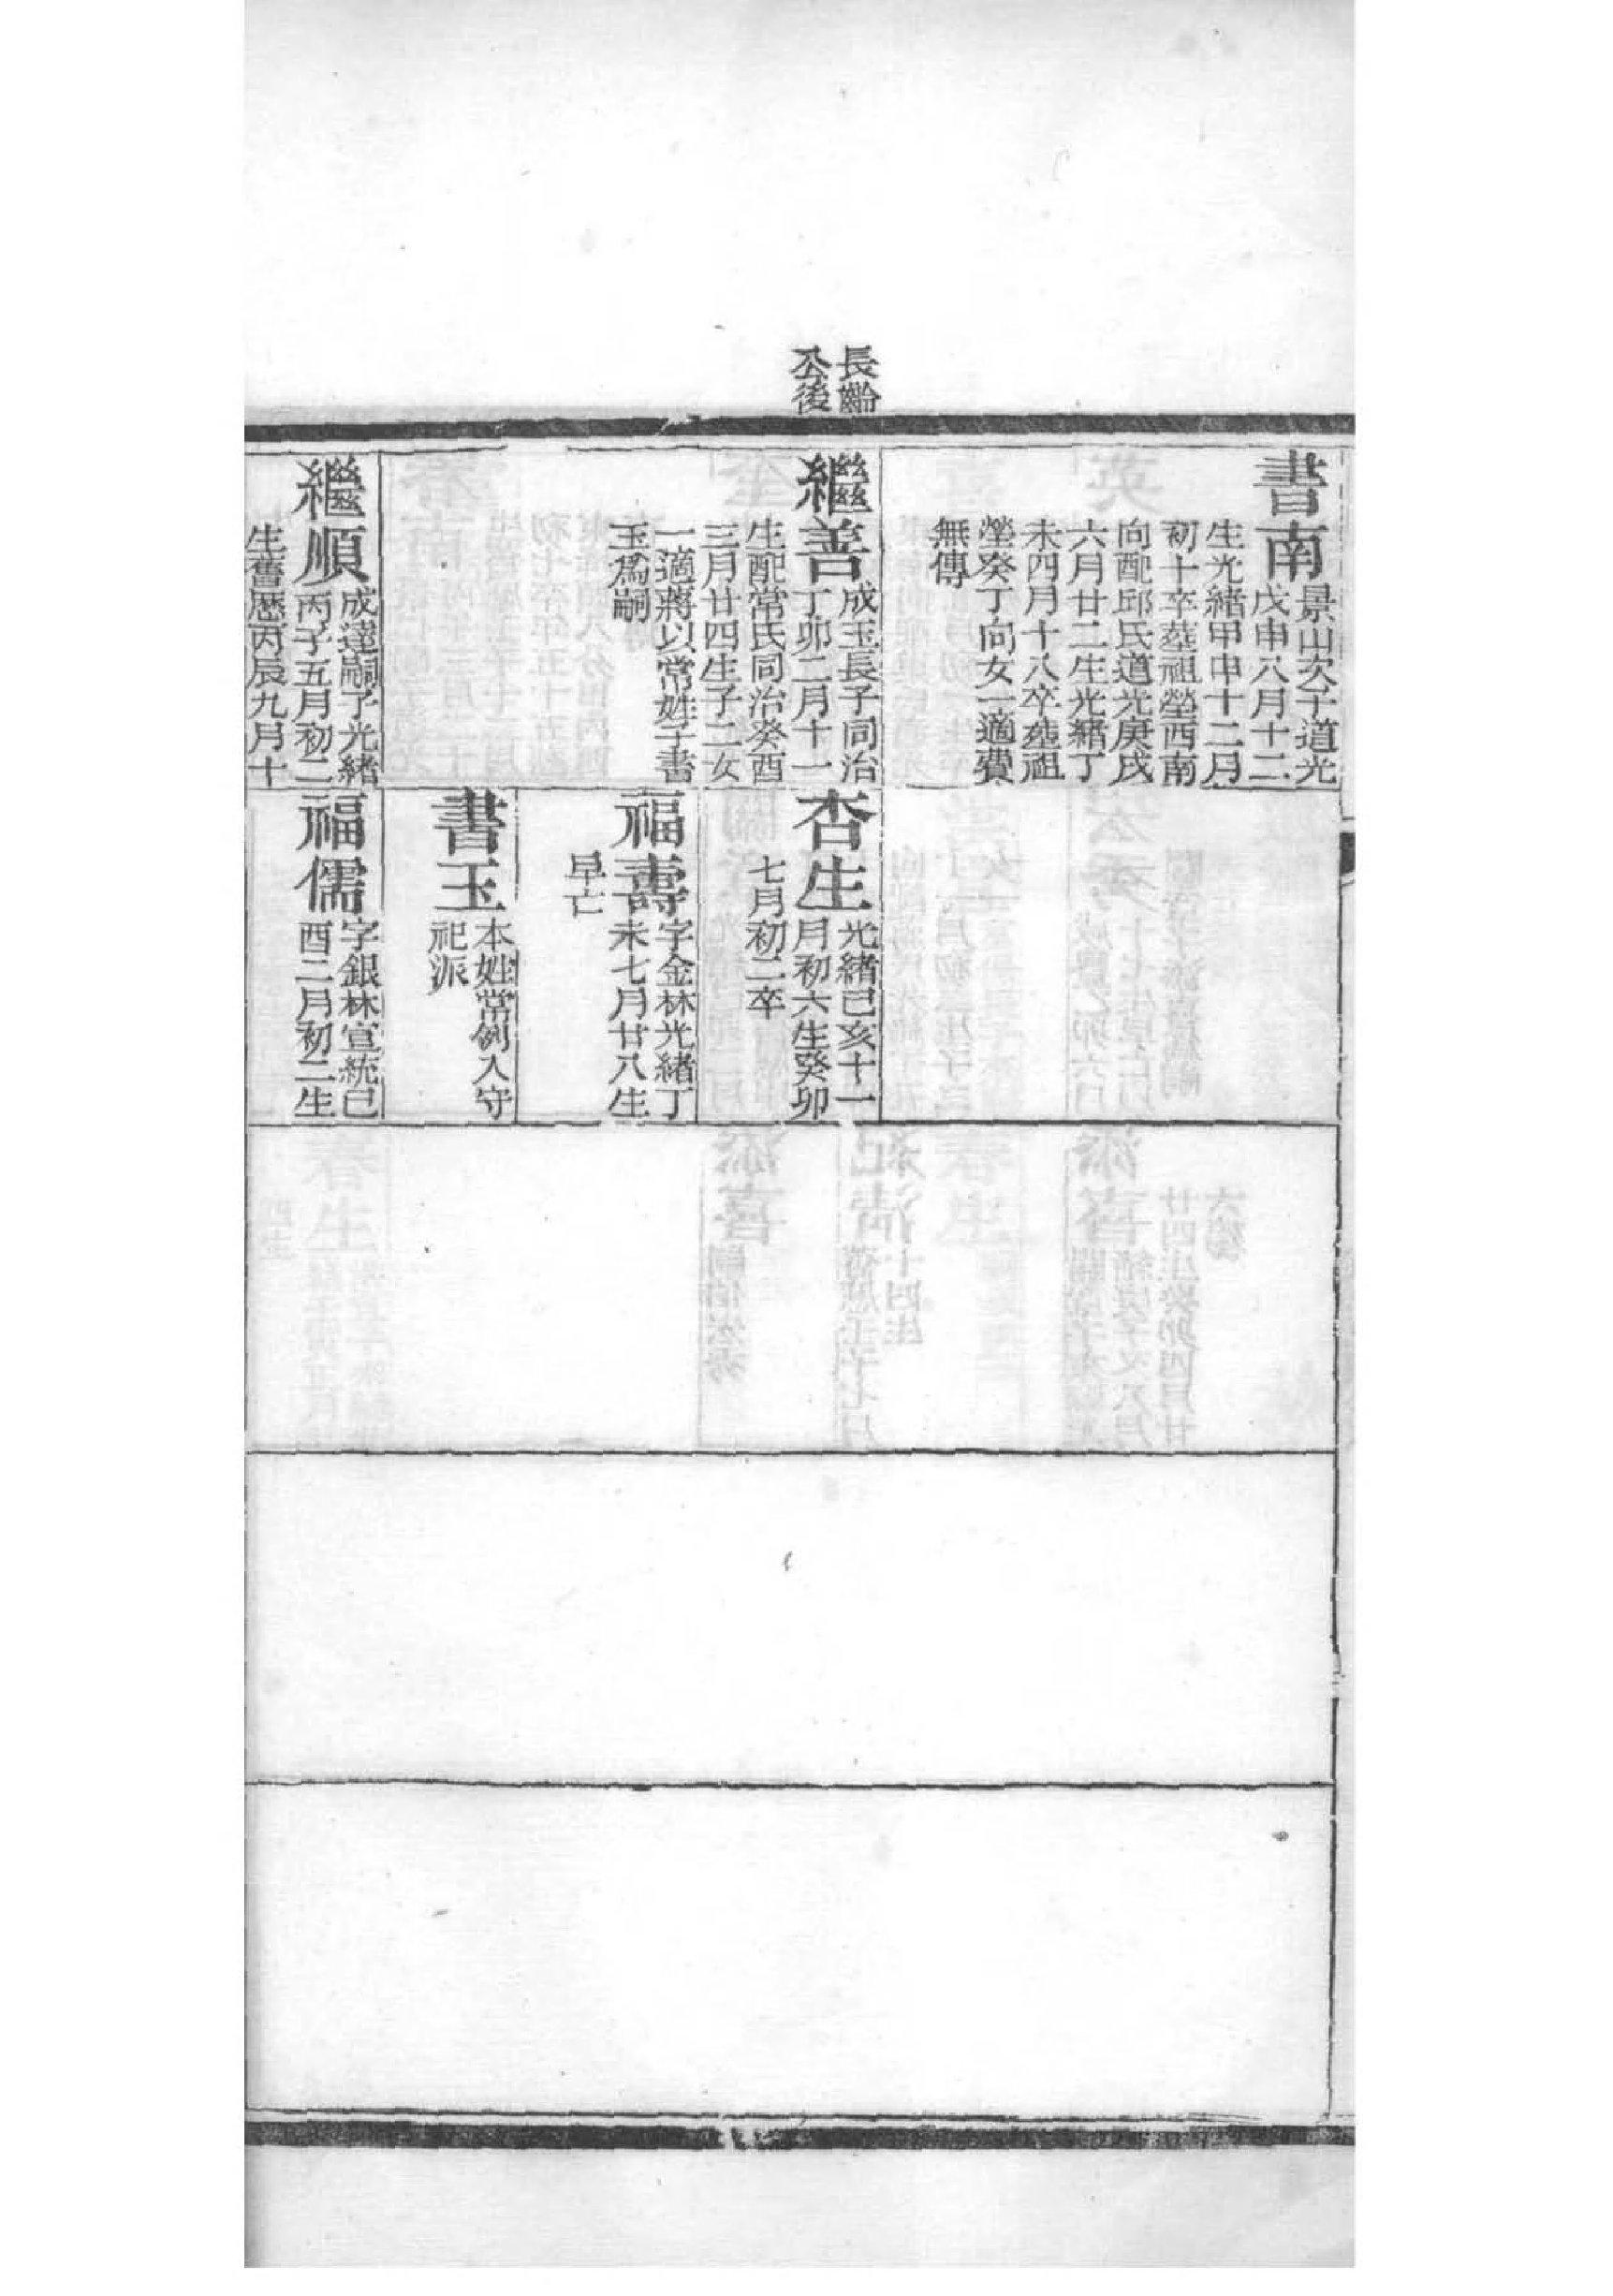 長齡
公後
書南
景山次子道光
戊申八月十二
生光緒甲申十二月
初十卒塟祖塋西南
向配邱氏道光庚戌
六月廿二生光緒丁
未四月十八卒塟祖
塋癸丁向女一適費
無傳
繼善
成玉長子同治
丁卯二月十一
生配常氏同治癸酉
三月廿四生子二女
一適蔣以常姓子書
玉爲嗣
繼順
成達嗣子光緒
丙子五月初二
生舊歷丙辰九月十
杏生
光緒己亥十一
月初六生癸卯
七月初二卒
福壽
字金林光緒丁
未七月廿八生
早亡
書玉
本姓常例入守
祀派
福儒
字銀林宣統己
酉二月初二生